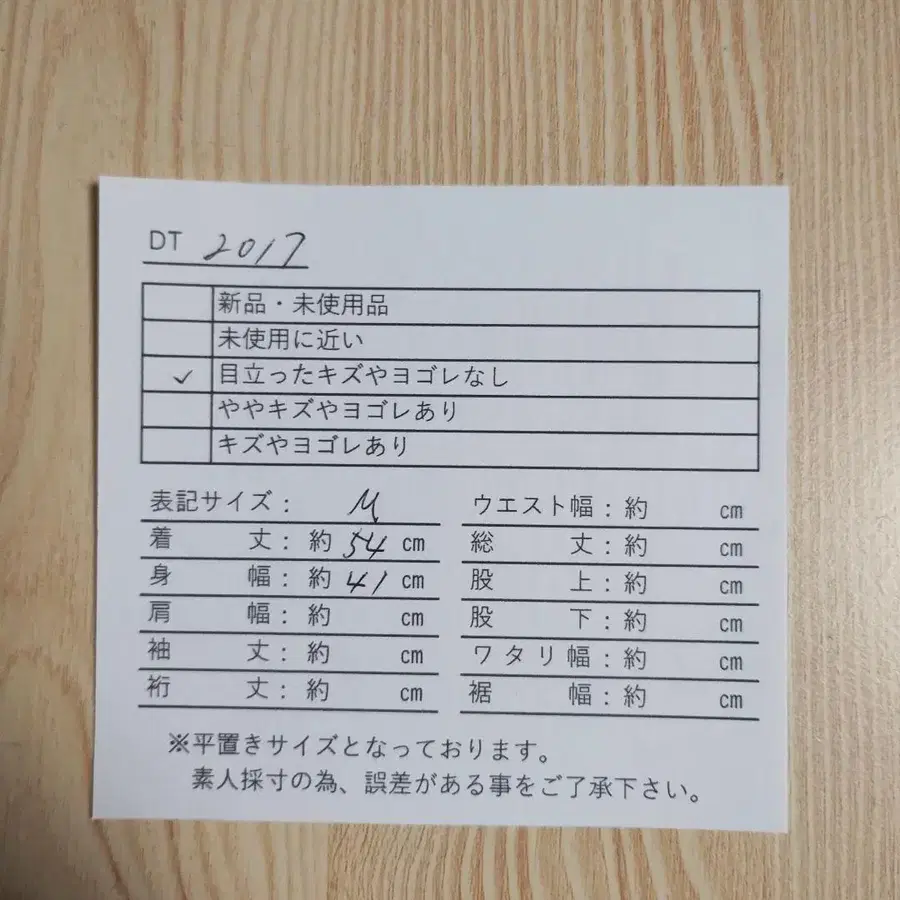 DT 2017
新品・未使用品
未使用に近い
✓ 目立ったキズやヨゴレなし
ややキズやヨゴレあり
キズやヨゴレあり
表記サイズ: M
着丈:約54cm
身幅:約41cm
肩幅:約 cm
袖丈:約 cm
裄丈:約 cm
ウエスト幅:約 cm
総丈:約 cm
股上:約 cm
股下:約 cm
ワタリ幅:約 cm
裾幅:約 cm
※平置きサイズとなっております。
素人採寸の為、誤差がある事をご了承下さい。